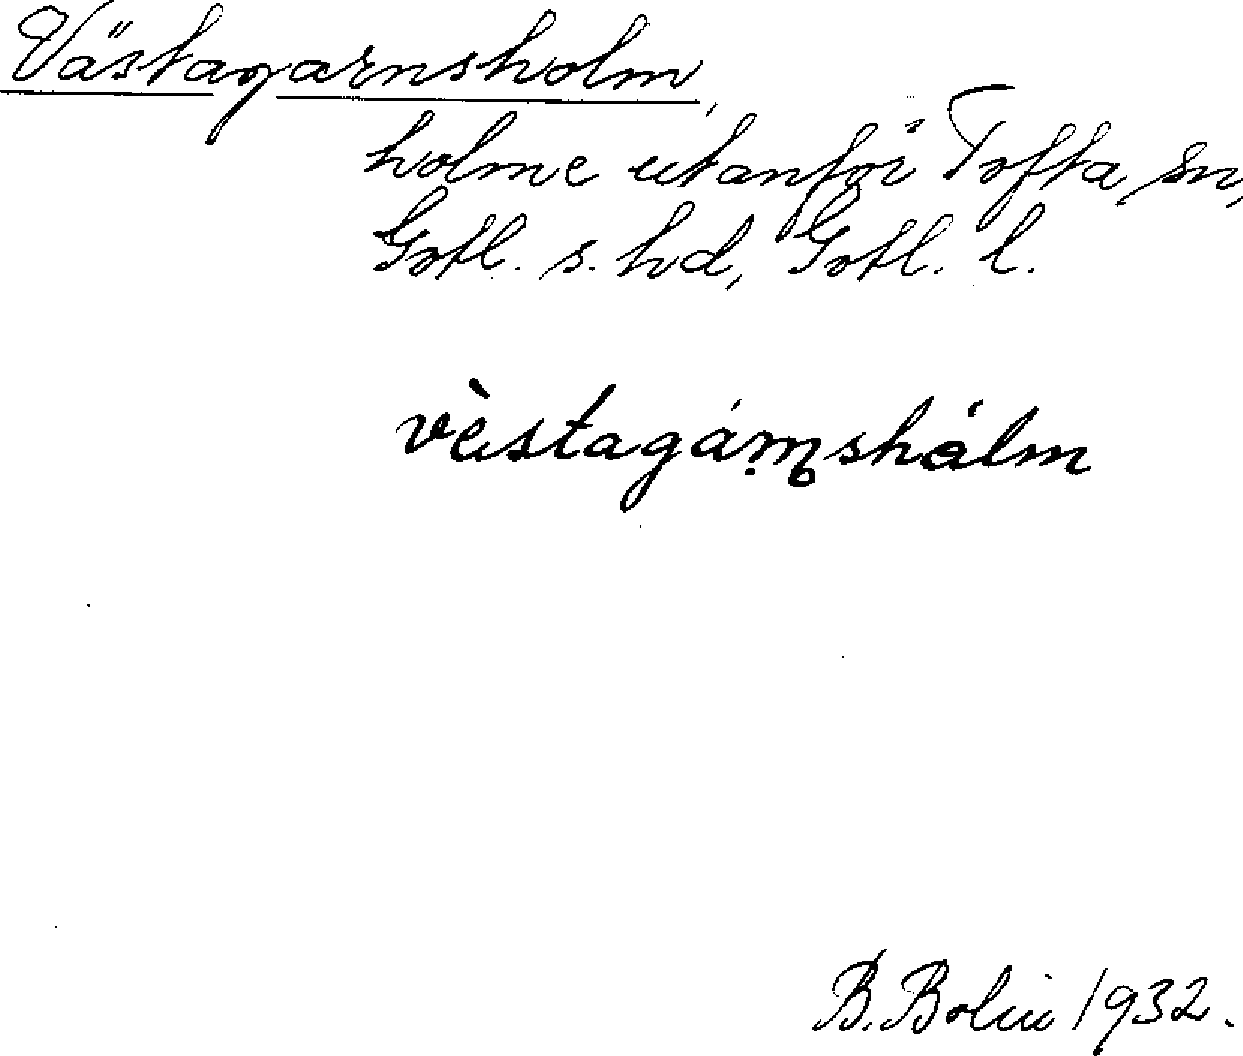 Västagarnsholm,
holme utanför Tofta sn,
Gotl. s. hd, Gotl. l.
vèstagáɳshálm
B. Bolin 1932.